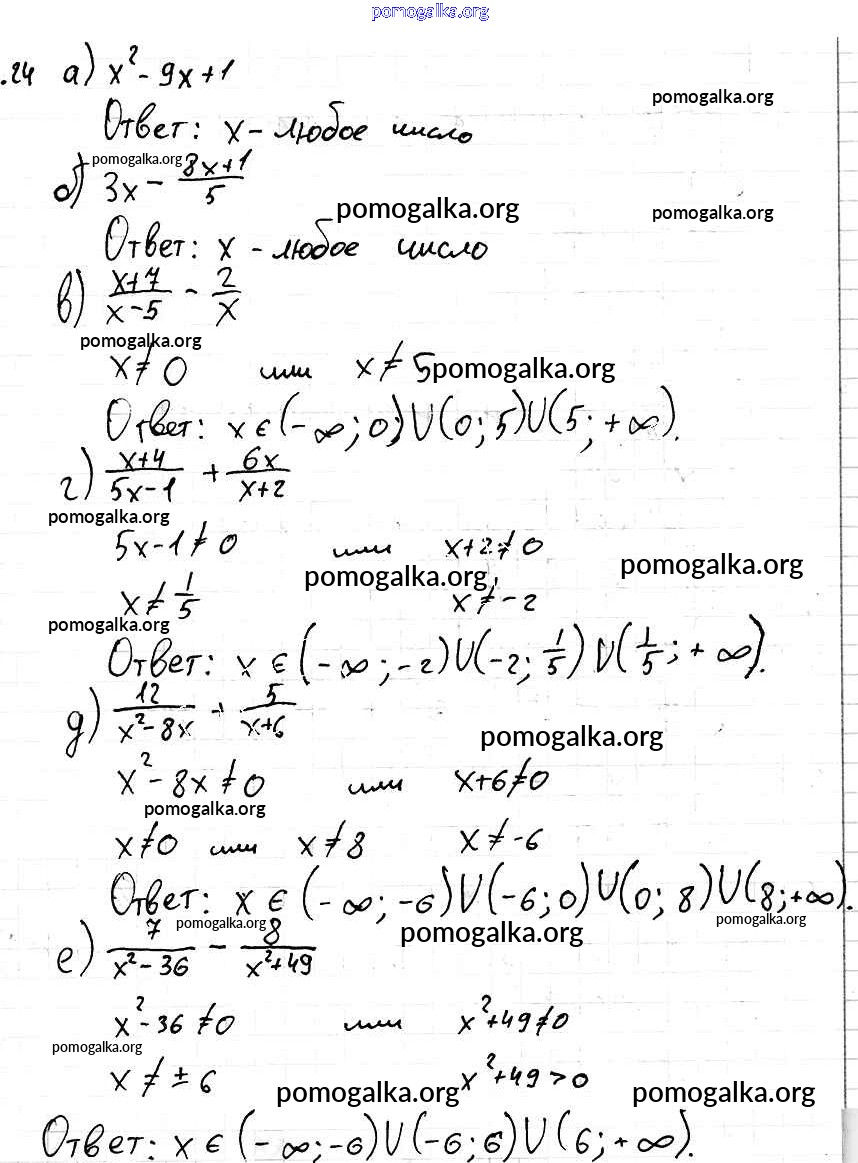 pomogalka.org
.24 а) x² - 9x + 1
pomogalka.org
Ответ: x - любое число
pomogalka.org
б) 3x - (8x+1)/5
pomogalka.org pomogalka.org
Ответ: x - любое число
в) (x+7)/(x-5) - 2/x
pomogalka.org
x ≠ 0 или x ≠ 5 pomogalka.org
Ответ: x ∈ (-∞; 0) ∪ (0; 5) ∪ (5; +∞).
г) (x+4)/(5x-1) + 6x/(x+2)
pomogalka.org
5x-1 ≠ 0 или x+2 ≠ 0
pomogalka.org pomogalka.org
x ≠ 1/5 x ≠ -2
pomogalka.org
Ответ: x ∈ (-∞; -2) ∪ (-2; 1/5) ∪ (1/5; +∞).
д) 12/(x²-8x) + 5/(x+6)
pomogalka.org
x² - 8x ≠ 0 или x+6 ≠ 0
pomogalka.org
x ≠ 0 или x ≠ 8 x ≠ -6
Ответ: x ∈ (-∞; -6) ∪ (-6; 0) ∪ (0; 8) ∪ (8; +∞).
pomogalka.org pomogalka.org pomogalka.org
е) 7/(x²-36) - 8/(x²+49)
x² - 36 ≠ 0 или x² + 49 ≠ 0
pomogalka.org
x ≠ ± 6 x² + 49 > 0
pomogalka.org pomogalka.org
Ответ: x ∈ (-∞; -6) ∪ (-6; 6) ∪ (6; +∞).